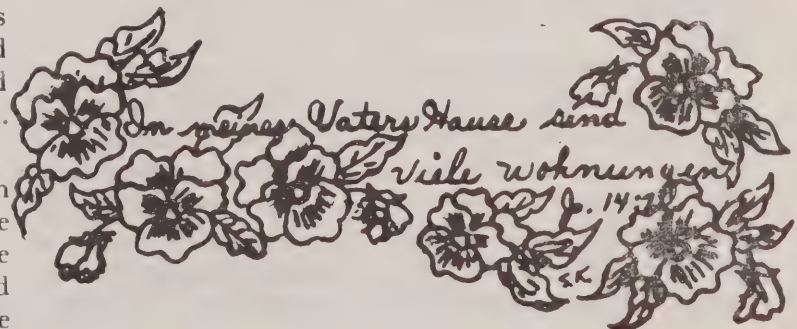 In meines Vaters Hause sind
viele wohnungen
J. 14:2
S.K.